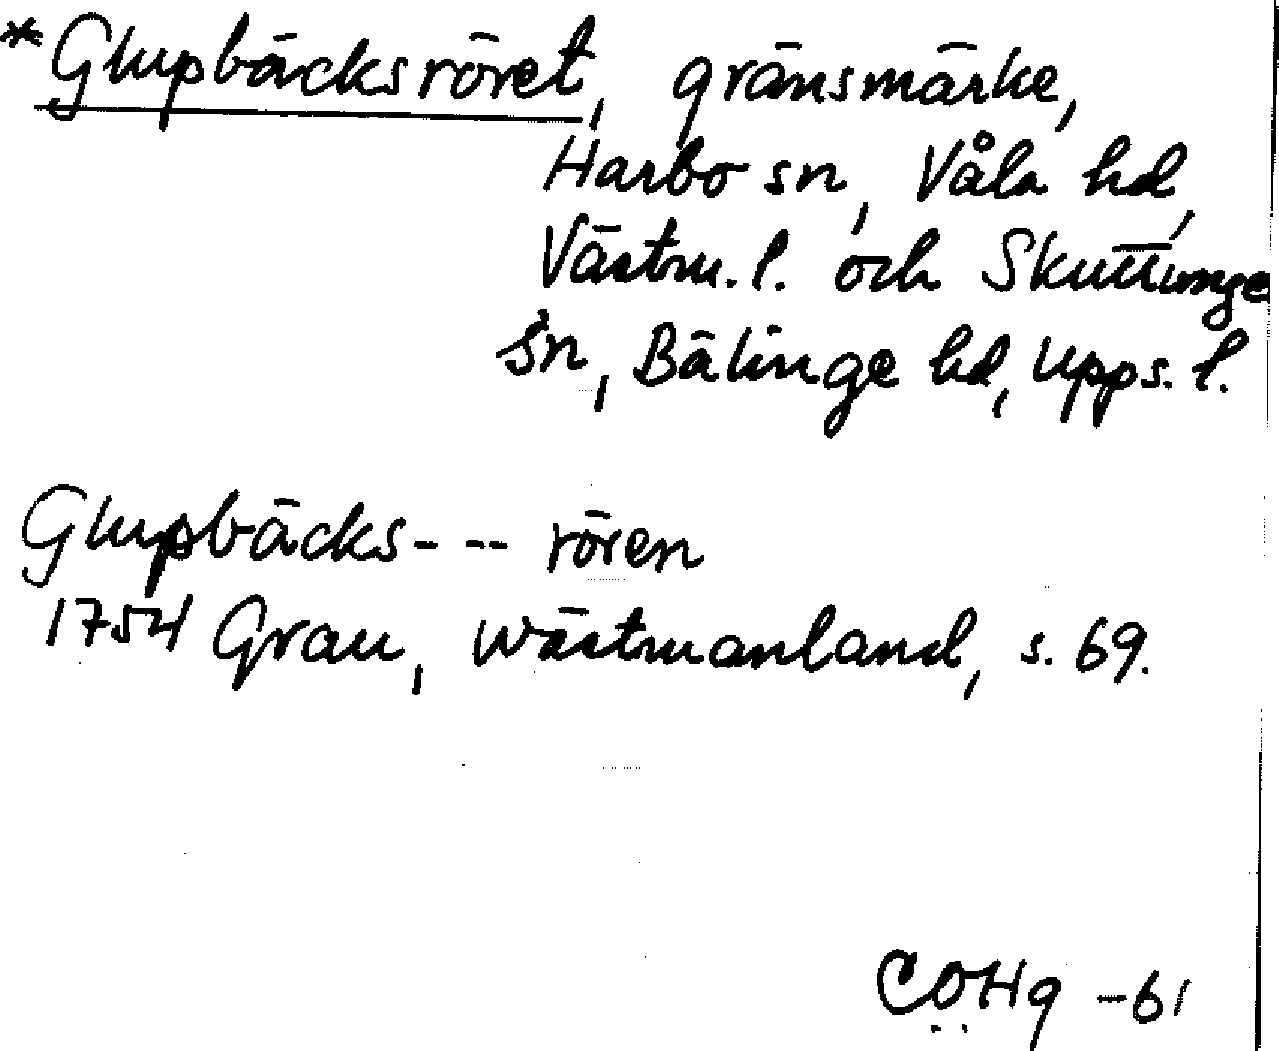 *Glupbäcksröret, gränsmärke,
Harbo sn, Våla hd,
Västm. l. och Skuttunge
sn, Bälinge hd, Upps. l.
Glupbäcks- -- rören
1754 Grau, Wästmanland, s. 69.
COHg -61